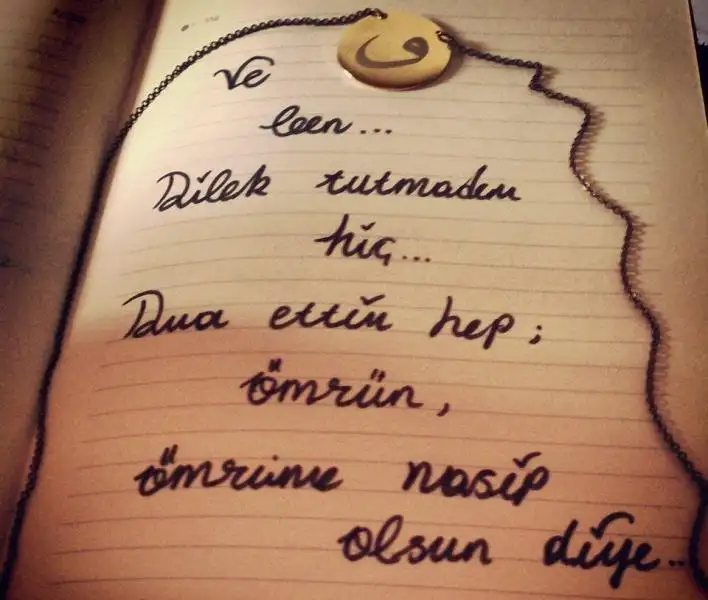 و
Ve
ben...
Dilek tutmadım
hiç...
Dua ettim hep;
ömrün,
ömrüme nasip
olsun diye...